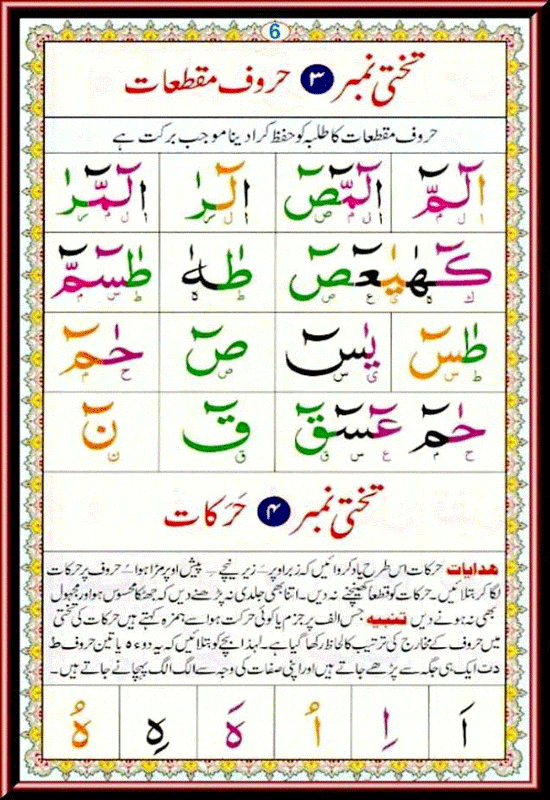 6
تختی نمبر ۳ حروف مقطعات
حروف مقطعات کا طلبہ کو حفظ کرا دینا موجب برکت ہے
الٓمّٓ الٓمّٓصٓ الٓرٰ الٓمّٓرٰ
ا ل م ا ل م ص ا ل ر ا ل م ر
كٓهٰيٰعٓصٓ طٰهٰ طٰسٓمّٓ
ك ه ی ع ص ط ه ط س م
طٰسٓ يٰسٓ صٓ حٰمٓ
ط س ی س ص ح م
حٰمٓ عٓسٓقٓ قٓ نٓ
ح م ع س ق ق ن
تختی نمبر ۴ حَرَکات
هدایات حرکات اس طرح یاد کروائیں کہ زبر اوپر ـَ زیر نیچے ـِ پیش اوپر مڑا ہوا ـُ حروف پر حرکات
لگا کر بتلائیں۔ حرکات کو قطعاً کھینچنے نہ دیں۔ اتنا بھی جلدی نہ پڑھنے دیں کہ جھٹکا محسوس ہو اور مجہول
بھی نہ ہونے دیں تنبیه جس الف پر جزم یا کوئی حرکت ہو اسے ہمزہ کہتے ہیں حرکات کی تختی
میں حروف کے مخارج کی ترتیب کا لحاظ رکھا گیا ہے۔ لہذا بچے کو بتلائیں کہ یہ دو ء ہ یا تین حروف ط
د ت ایک ہی جگہ سے پڑھے جاتے ہیں اور اپنی صفات کی وجہ سے الگ الگ پہچانے جاتے ہیں۔
اَ اِ اُ هَ هِ هُ